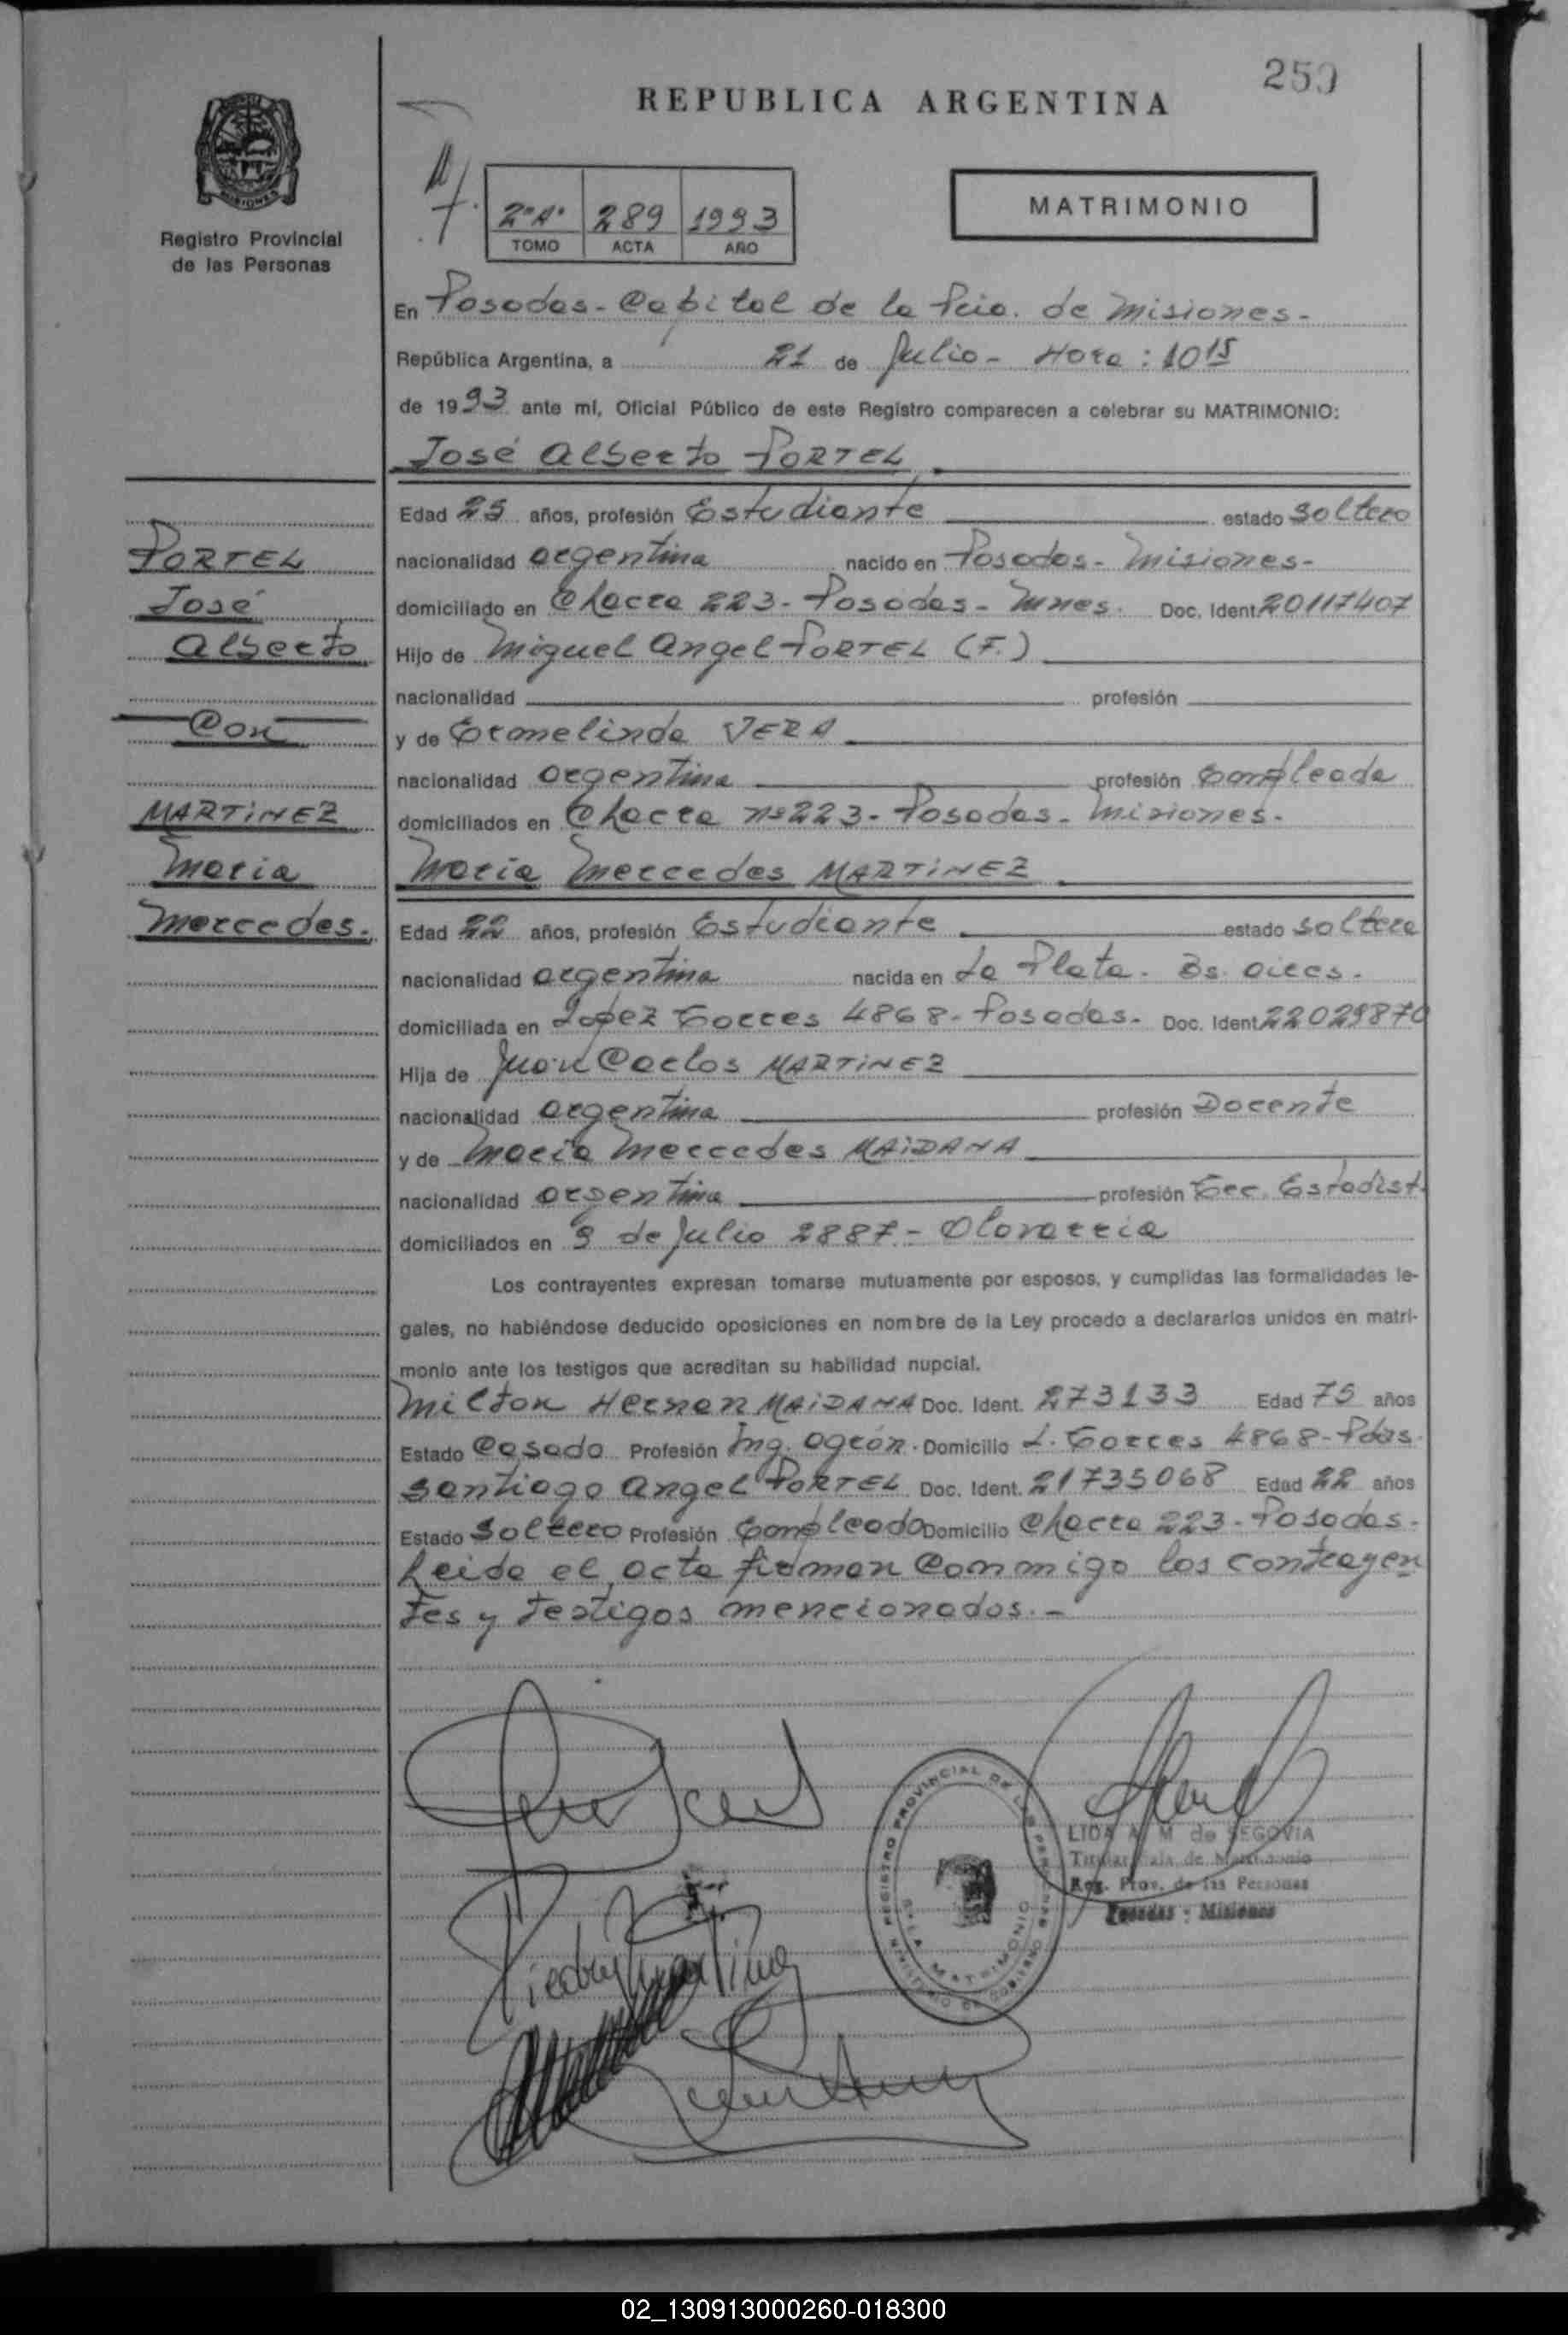 259
REPUBLICA ARGENTINA
MISIONES
Registro Provincial
de las Personas
2º A°
289
1993
TOMO
ACTA
AÑO
MATRIMONIO
En Posadas - Capital de la Pcia. de Misiones -
República Argentina, a 21 de Julio - Hora : 10 15
de 1993 ante mí, Oficial Público de este Registro comparecen a celebrar su MATRIMONIO:
José Alberto PORTEL
PORTEL
José
Alberto
Con
MARTINEZ
Maria
Mercedes.
Edad 25 años, profesión Estudiante estado soltero
nacionalidad argentina nacido en Posadas - Misiones -
domiciliado en Chacra 223 - Posadas - Mnes. Doc. Ident. 20117407
Hijo de Miguel Angel PORTEL (F.)
nacionalidad profesión
y de Ermelinda VERA
nacionalidad argentina profesión Empleada
domiciliados en Chacra nº 223 - Posadas - Misiones -
Maria Mercedes MARTINEZ
Edad 22 años, profesión Estudiante estado soltera
nacionalidad argentina nacida en La Plata - Bs. Aires.
domiciliada en Lopez Torres 4868 - Posadas - Doc. Ident. 22029870
Hija de Juan Carlos MARTINEZ
nacionalidad argentina profesión Docente
y de Maria Mercedes MAIDANA
nacionalidad argentina profesión Tec. Estadist.
domiciliados en 9 de Julio 2887 - Olavarria
Los contrayentes expresan tomarse mutuamente por esposos, y cumplidas las formalidades le-
gales, no habiéndose deducido oposiciones en nombre de la Ley procedo a declararlos unidos en matri-
monio ante los testigos que acreditan su habilidad nupcial.
Milton Hernan MAIDANA Doc. Ident. 273133 Edad 75 años
Estado Casado Profesión Ing. Agrón. Domicilio L. Torres 4868 - Pdas.
Santiago Angel PORTEL Doc. Ident. 21735068 Edad 22 años
Estado Soltero Profesión Empleado Domicilio Chacra 223 - Posadas -
Leida el acta firman conmigo los contrayen
tes y testigos mencionados. -
REGISTRO PROVINCIAL DE LAS PERSONAS
SALA MATRIMONIO
MINISTERIO DE GOBIERNO
LIDA A. M de SEGOVIA
Titular Sala de Matrimonio
Reg. Prov. de las Personas
Posadas - Misiones
02_130913000260-018300